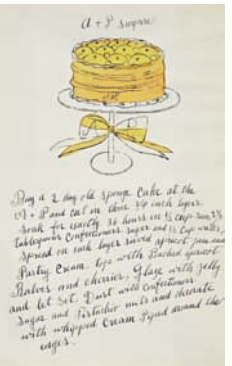 A & P Surprise
Buy a 2 day old sponge Cake at the
A & P and cut in three 3/4 inch layers.
Soak for exactly 36 hours in 1/2 cup rum, 2 1/2
tablespoons Confectioners sugar and 1/2 cup water,
Spread on each layer sieved apricot jam and
Pastry Cream. top with Poached apricot
Halves and cherries. Glaze with jelly
and let Sit. Dust with Confectioners
Sugar and Pistachio nuts and decorate
with whipped Cream Piped around the
edges.